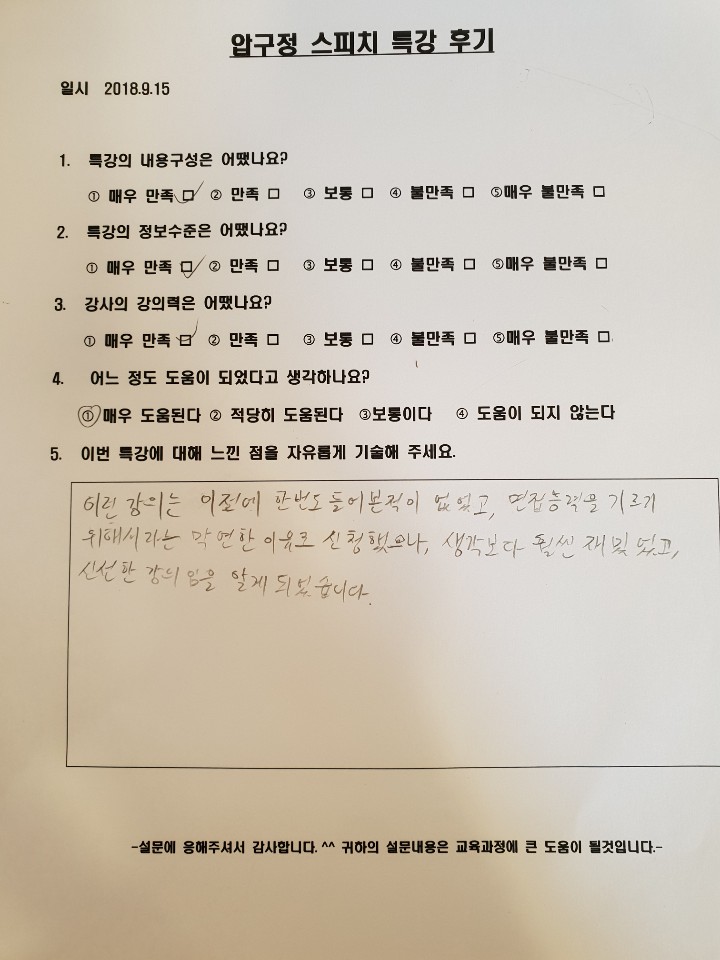 압구정 스피치 특강 후기
일시 2018.9.15
1. 특강의 내용구성은 어땠나요?
① 매우 만족 ☑ ② 만족 □ ③ 보통 □ ④ 불만족 □ ⑤매우 불만족 □
2. 특강의 정보수준은 어땠나요?
① 매우 만족 ☑ ② 만족 □ ③ 보통 □ ④ 불만족 □ ⑤매우 불만족 □
3. 강사의 강의력은 어땠나요?
① 매우 만족 ☑ ② 만족 □ ③ 보통 □ ④ 불만족 □ ⑤매우 불만족 □
4. 어느 정도 도움이 되었다고 생각하나요?
① 매우 도움된다 ② 적당히 도움된다 ③보통이다 ④ 도움이 되지 않는다
5. 이번 특강에 대해 느낀 점을 자유롭게 기술해 주세요.
이런 강의는 이전에 한번도 들어본적이 없었고, 면접능력을 기르기
위해서라는 막연한 이유로 신청했으나, 생각보다 훨씬 재밌었고,
신선한 강의임을 알게 되었습니다.
-설문에 응해주셔서 감사합니다. ^^ 귀하의 설문내용은 교육과정에 큰 도움이 될것입니다.-